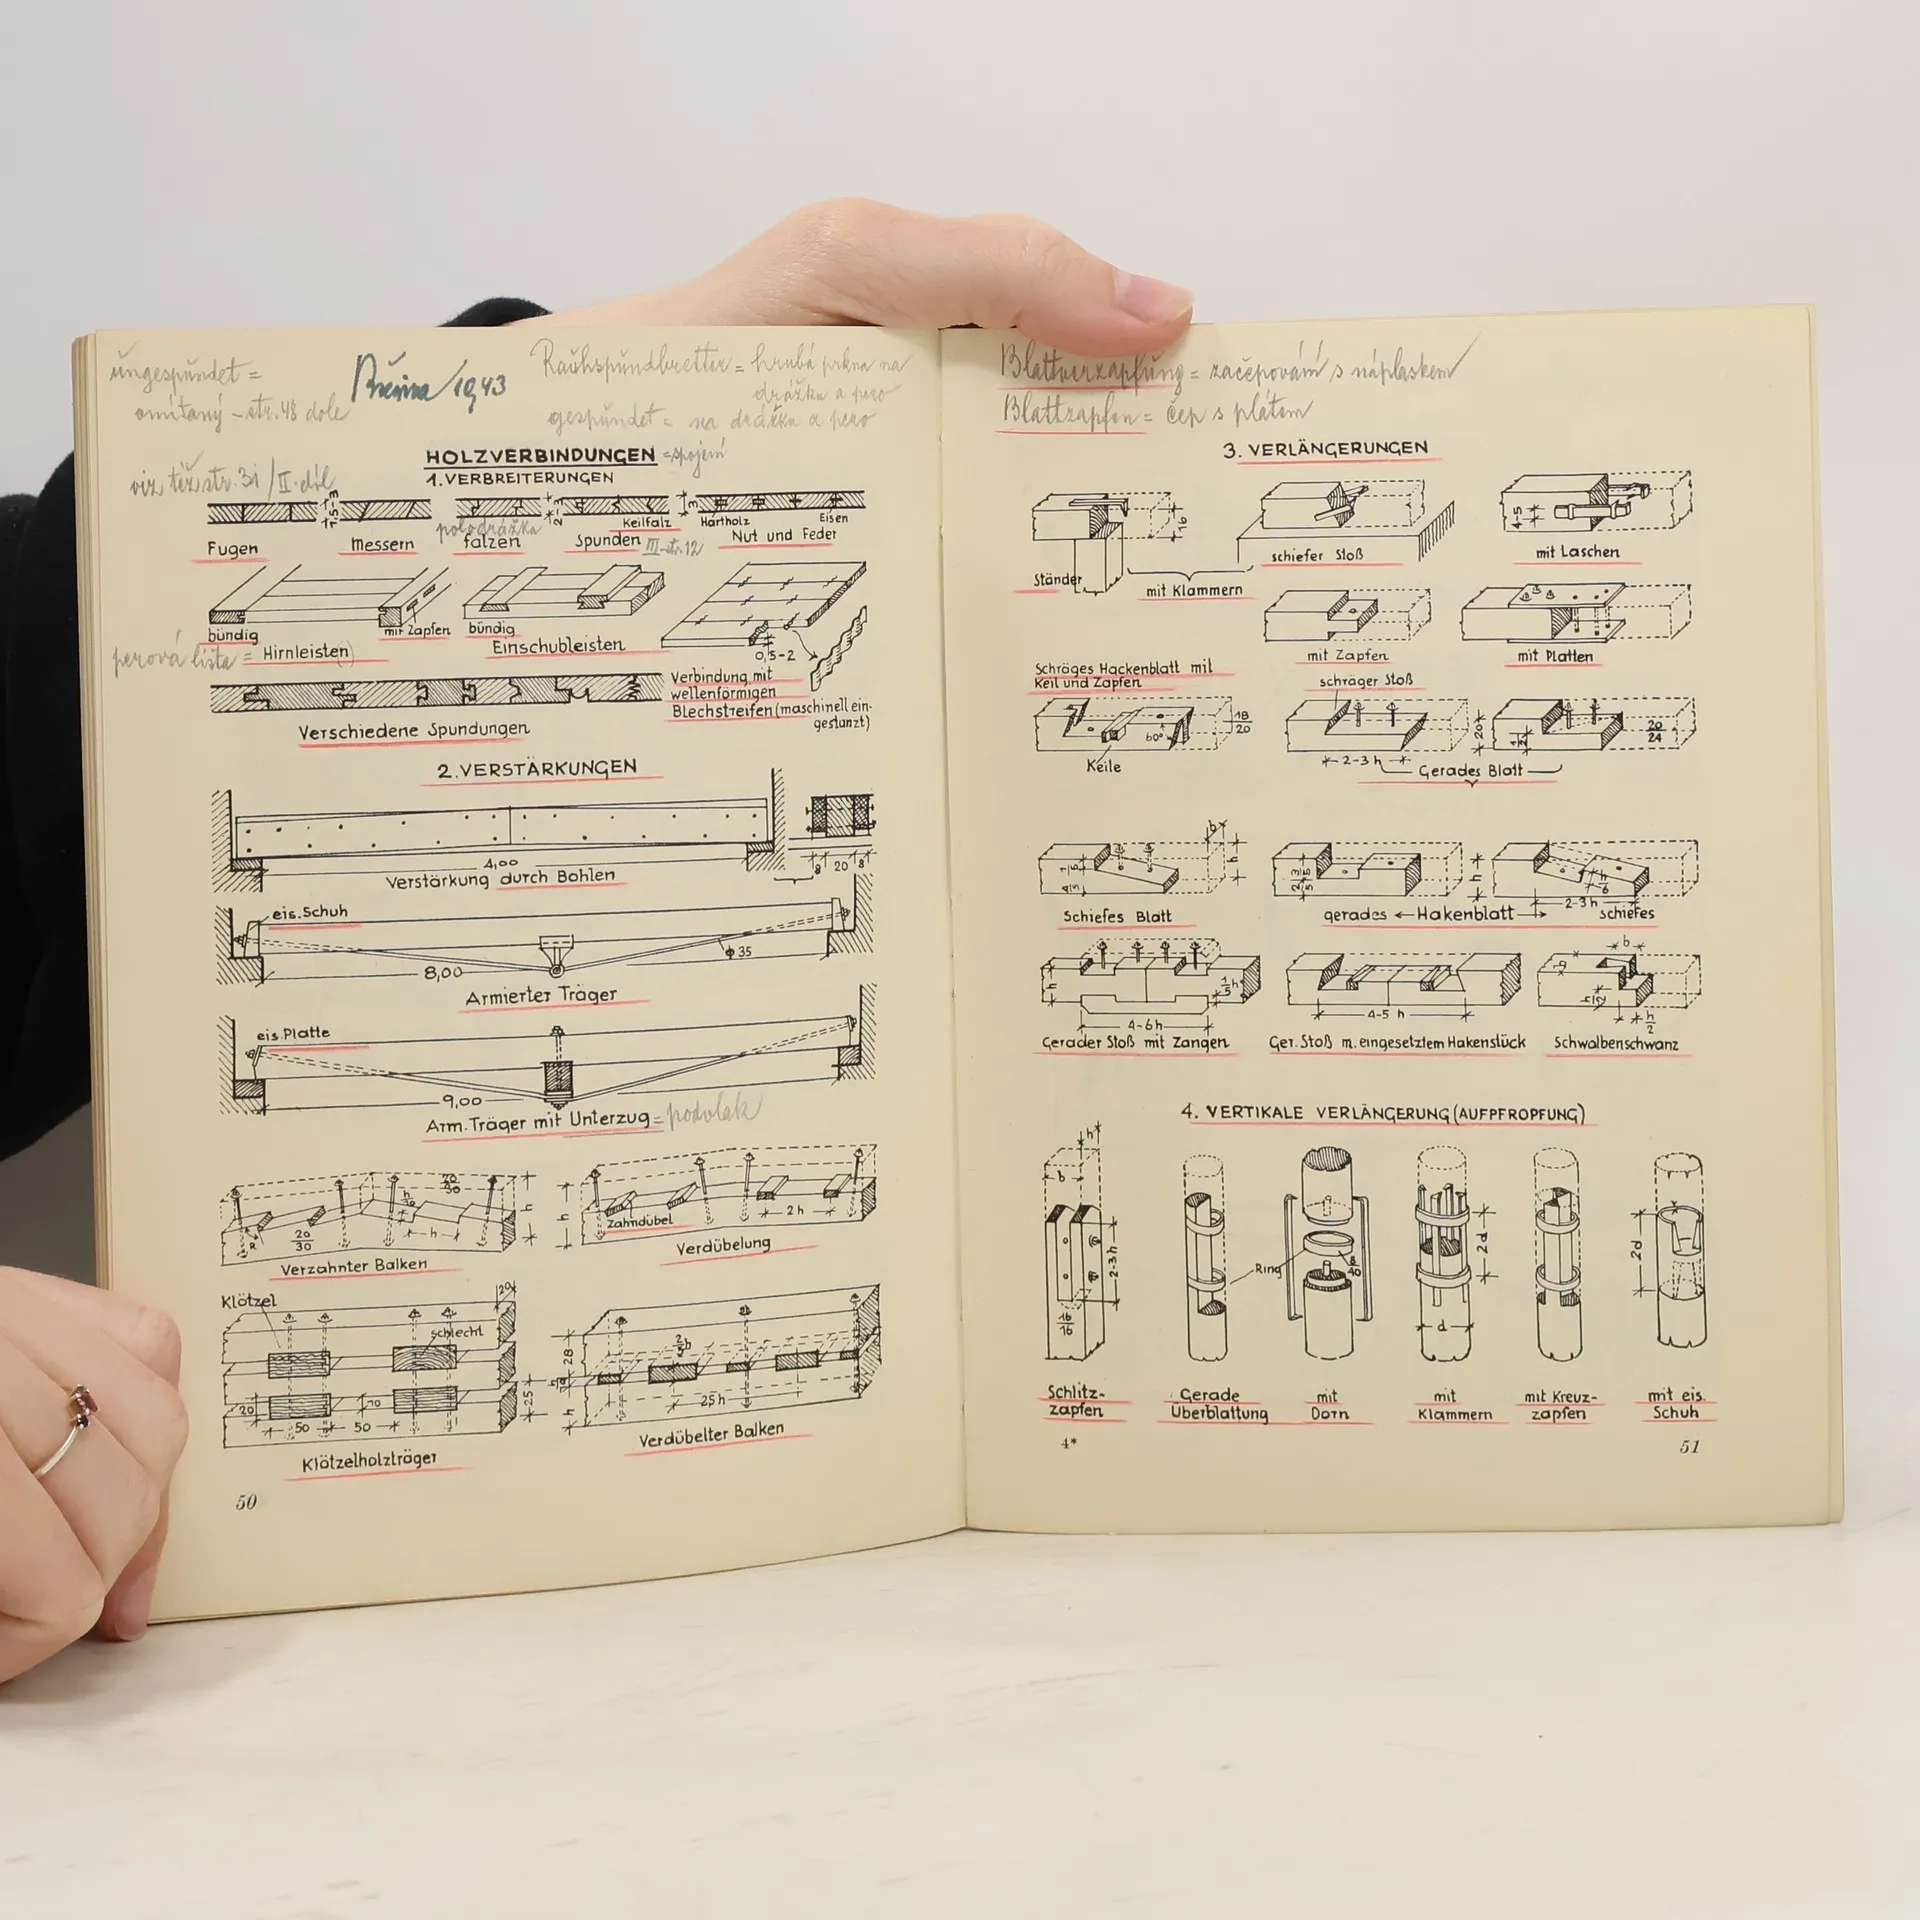 ungespündet =
omítaný – str. 48 dole
1943
Rauhspundbretter = hrubá prkna na
drážku a pero
gespündet = na drážku a pero
HOLZVERBINDUNGEN = spojení
viz též str. 31 / II. díl
1. VERBREITERUNGEN
1,5-3
2-3
3
polodrážka
Keilfalz
Hartholz
Eisen
Fugen
Messern
falzen
Spunden
III-str. 12
Nut und Feder
bündig
mit Zapfen
bündig
perová lišta = Hirnleisten
Einschubleisten
0,5-2
Verbindung mit
wellenförmigen
Blechstreifen (maschinell ein-
gestanzt)
Verschiedene Spundungen
2. VERSTÄRKUNGEN
4,00
8 20 8
Verstärkung durch Bohlen
eis. Schuh
8,00
ϕ 35
Armierter Träger
eis. Platte
9,00
Arm. Träger mit Unterzug = podvlak
20/30
h
h
20/30
h
Verzahnter Balken
Zahndübel
2 h
h
Verdübelung
Klötzel
20
schlecht
20
10
50
50
25
Klötzelholzträger
28
h
2,5 h
Verdübelter Balken
50
Blattverzapfung = začepování s náplaskem
Blattzapfen = čep s plátem
3. VERLÄNGERUNGEN
16
4-5
schiefer Stoß
mit Laschen
Ständer
mit Klammern
mit Zapfen
mit Platten
Schräges Hackenblatt mit
Keil und Zapfen
schräger Stoß
60°
18/20
20
20/24
Keile
2-3 h
Gerades Blatt
b
h
h
2-3 h
Schiefes Blatt
gerades ← Hakenblatt → schiefes
h
1/5 h
4-6 h
4-5 h
b
h/2
Gerader Stoß mit Zangen
Ger. Stoß m. eingesetztem Hakenstück
Schwalbenschwanz
4. VERTIKALE VERLÄNGERUNG (AUFPFROPFUNG)
h
b
2-3 h
16/16
Ring
8/40
2d
d
2d
Schlitz-
zapfen
Gerade
Überblattung
mit
Dorn
mit
Klammern
mit Kreuz-
zapfen
mit eis.
Schuh
4*
51